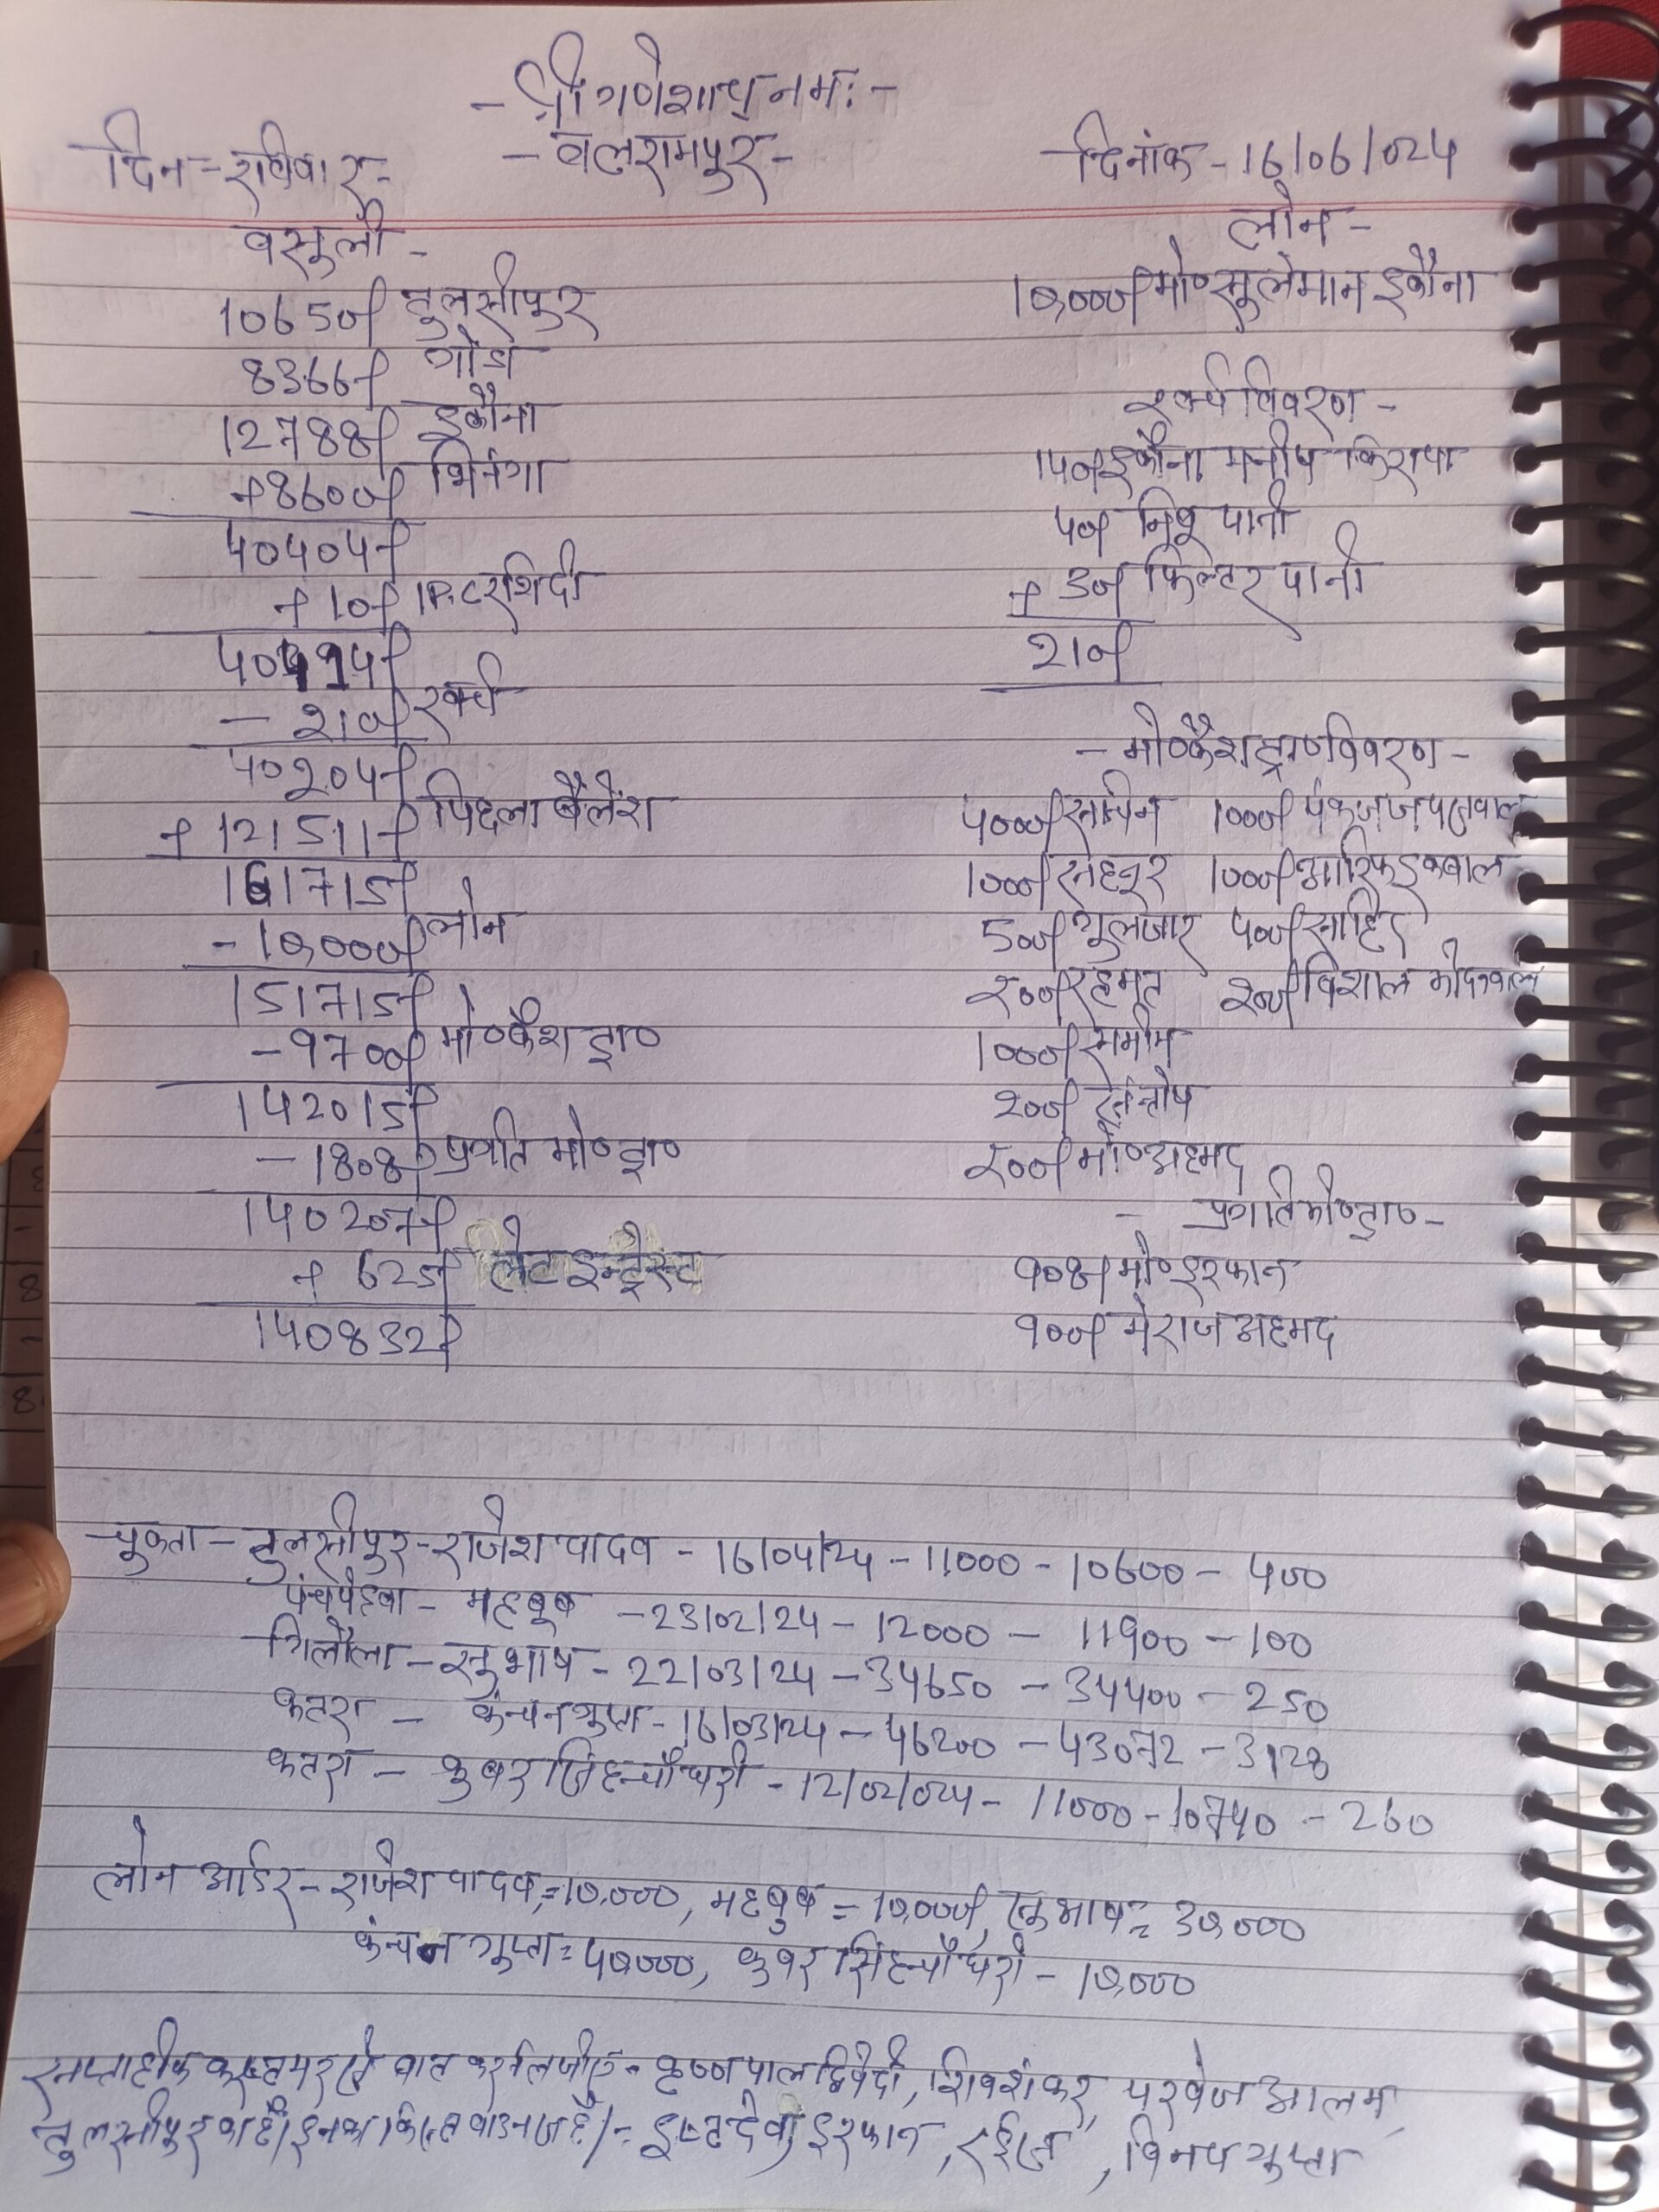 - श्री गणेशाय नमः -
- बलरामपुर -
दिन = रविवार - दिनांक - 16/06/024
वसुली -
10650/ तुलसीपुर
8366/ गोंडा
12788/ इकौना
+ 8600/ भिनगा
40404/
+ 10/ I.P.C रशिदी
40414/
- 210/ खर्च
40204/
+ 121511/ पिछला बैलेंश
161715/
- 10,000/ लोन
151715/
- 9700/ मो० कैश ट्रा०
142015/
- 1808/ प्रगति मो० ट्रा०
140207/
+ 625/ लेट इन्ट्रेस्ट
140832/
लोन -
10,000/ मो० सुलेमान इकौना
खर्च विवरण -
140/ इकौना मनीष किराया
40/ निधू पानी
+ 30/ फिल्टर पानी
210/
- मो० कैश ट्रा० विवरण -
4000/ सचिन 1000/ पंकज
1000/ 1000/ आरिफ इकबाल
500/ गुलजार 400/ साहिद
200/ रहमत 200/ विशाल मोदनवाल
1000/ समीम
200/ सन्तोष
200/ मो० अहमद
- प्रगति मो० ट्रा० -
908/ मो० इरफान
900/ मेराज अहमद
चुक्ता - तुलसीपुर - राजेश यादव - 16/04/24 - 11000 - 10600 - 400
पंचपेड़वा - महबूब - 23/02/24 - 12000 - 11900 - 100
गिलौला - सुभाष - 22/03/24 - 34650 - 34400 - 250
कटरा - कंचन गुप्ता - 16/03/24 - 46200 - 43072 - 3128
कटरा - कुवर सिंह चौधरी - 12/02/024 - 11000 - 10740 - 260
लोन आर्डर - राजेश यादव = 10,000, महबुब = 10,000/, सुभाष = 30,000
कंचन गुप्ता = 40000, कुवर सिंह चौधरी - 10,000
सप्ताहीक कस्टमर से बात कर लिजीए - कृष्ण पाल द्विवेदी, शिवशंकर, परवेज आलम,
तुलसीपुर का है। इनका किस्त है। - इष्टदेव, इरफान, रईस, विनय गुप्ता